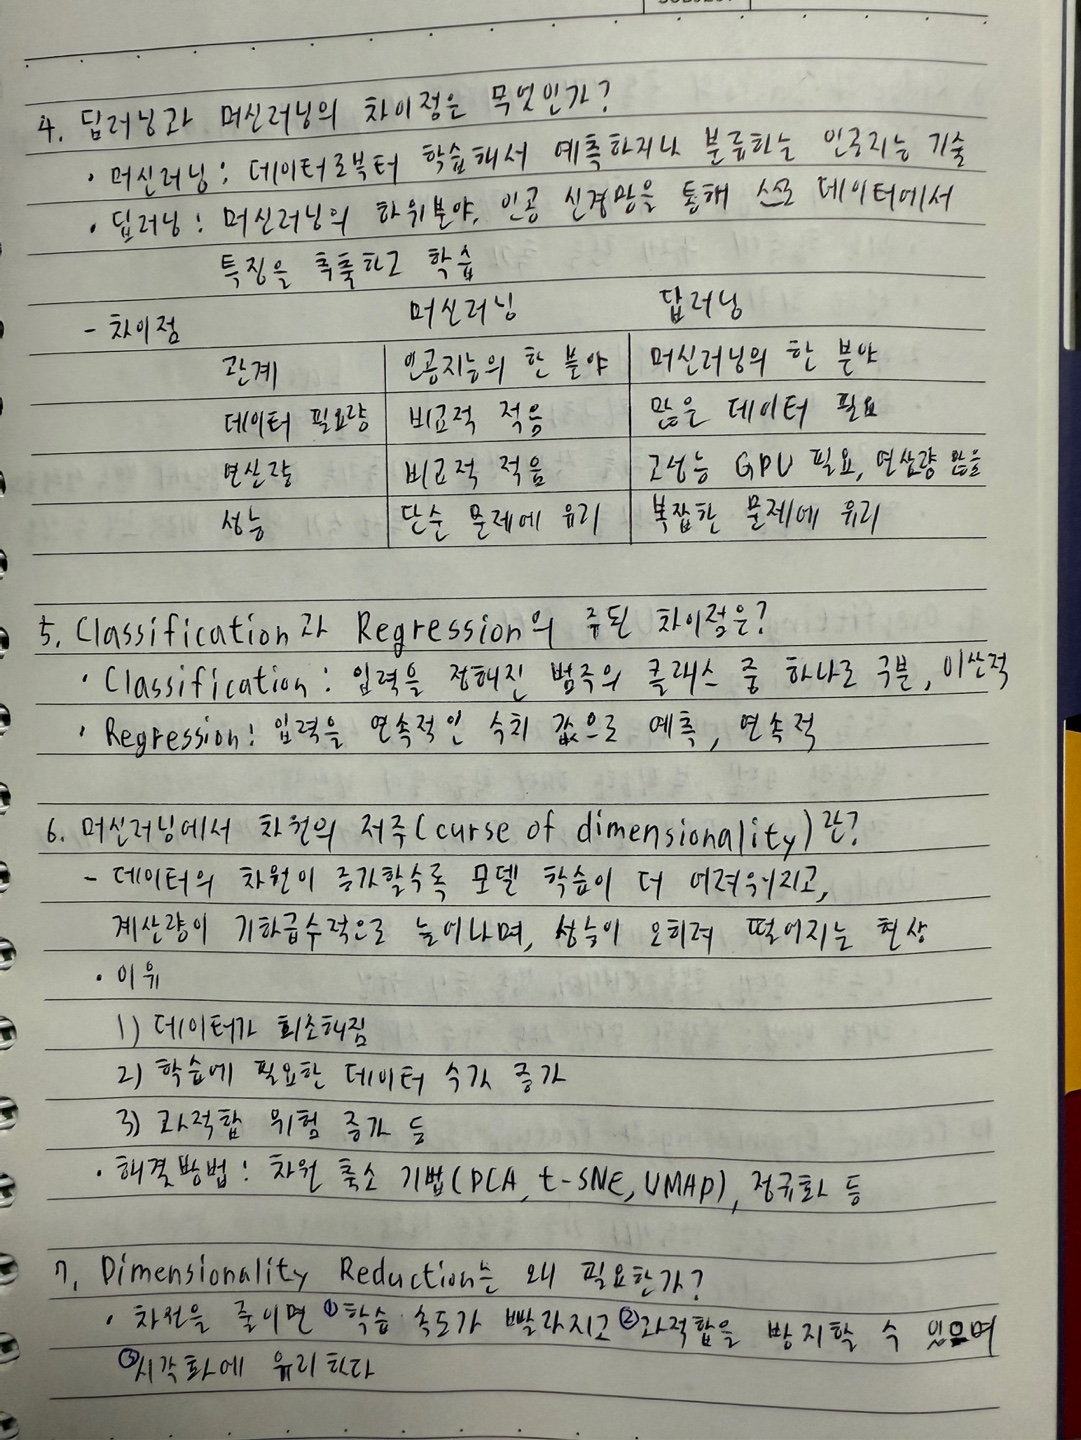 4. 딥러닝과 머신러닝의 차이점은 무엇인가?
· 머신러닝 : 데이터로부터 학습해서 예측하거나 분류하는 인공지능 기술
· 딥러닝 : 머신러닝의 하위분야, 인공 신경망을 통해 스스로 데이터에서
특징을 추출하고 학습
- 차이점 머신러닝 딥러닝
관계 인공지능의 한 분야 머신러닝의 한 분야
데이터 필요량 비교적 적음 많은 데이터 필요
연산량 비교적 적음 고성능 GPU 필요, 연산량 많음
성능 단순 문제에 유리 복잡한 문제에 유리
5. Classification과 Regression의 주된 차이점은?
· Classification : 입력을 정해진 범주의 클래스 중 하나로 구분, 이산적
· Regression : 입력을 연속적인 수치 값으로 예측, 연속적
6. 머신러닝에서 차원의 저주(curse of dimensionality)란?
- 데이터의 차원이 증가할수록 모델 학습이 더 어려워지고,
계산량이 기하급수적으로 늘어나며, 성능이 오히려 떨어지는 현상
· 이유
1) 데이터가 희소해짐
2) 학습에 필요한 데이터 수가 증가
3) 과적합 위험 증가 등
· 해결방법 : 차원 축소 기법(PCA, t-SNE, UMAP), 정규화 등
7. Dimensionality Reduction는 왜 필요한가?
· 차원을 줄이면 ①학습 속도가 빨라지고 ②과적합을 방지할 수 있으며
③시각화에 유리하다